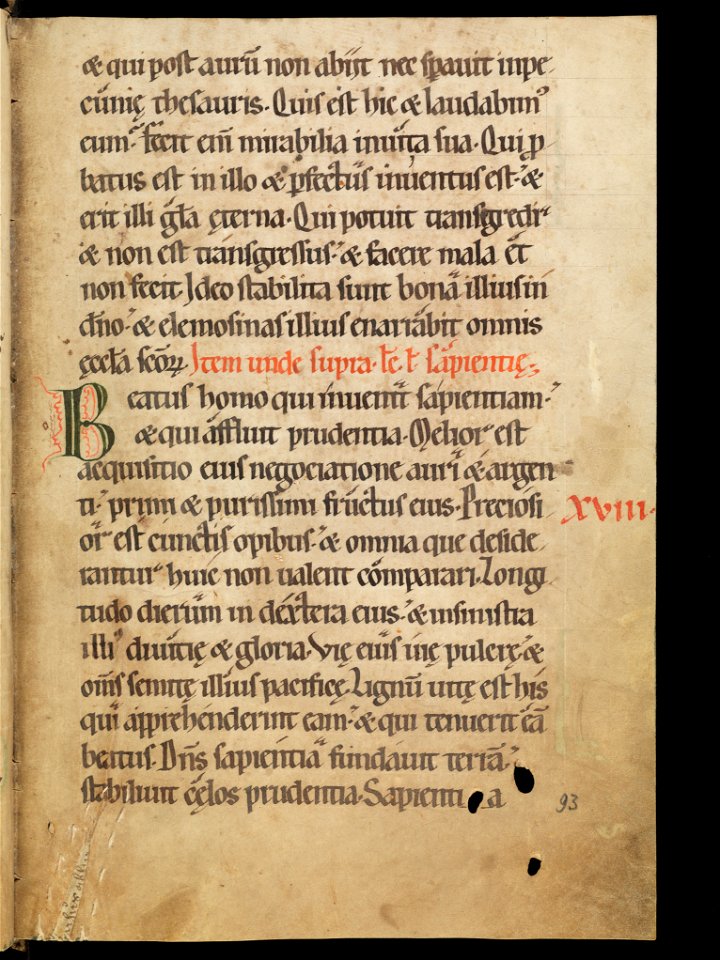 & qui post aurū non abiit nec spauit inpe-
cunię thesauris. Quis est hic & laudabim⁹
eum. fecit eni͞ mirabilia in uita sua. Qui p-
batus est in illo & pfectus inuentus est. &
erit illi gl̄a ęterna. Qui potuit transgredi
& non est transgressus. & facere mala et
non fecit. Ideo stabilita sunt bona illius in
dn̄o. & elemosinas illius enarrabit omnis
ęccl̄a sc̄oꝝ. Item unde supra. le. l sapientię.
Beatus homo qui inuenit sapientiam.
& qui affluit prudentia. Melior est
acquisitio eius negociatione auri & argen
ti. primi & purissimi fructus eius. Preciosi-
or est cunctis opibus. & omnia que deside-
rantur huic non ualent comparari. Longi
tudo dierum in dextera eius. & in sinistra
illi⁹ diuitię & gloria. Vię eius uię pulcrę. &
om̄s semitę illius pacificę. Lignū uitę est his
qui apprehenderint eam. & qui tenuerit eā
beatus. Dn̄s sapientia fundauit terrā.
stabiliuit cęlos prudentia. Sapienti a
XVIII.
93